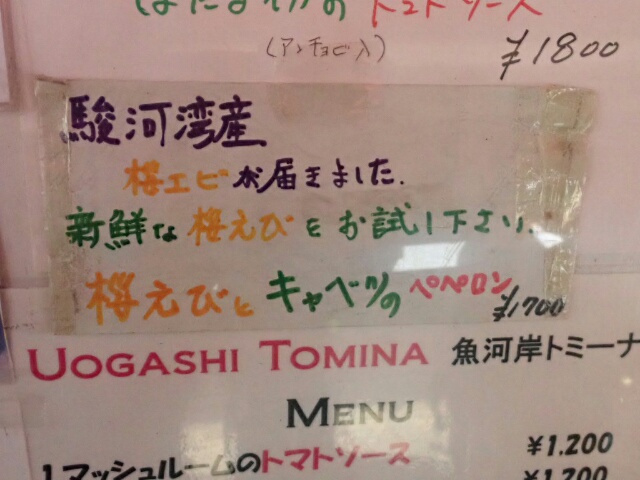 トマトソース
(アンチョビ入)
¥1800
駿河湾産
桜エビが届きました.
新鮮な桜えびをお試し下さい.
桜えびとキャベツのペペロン
¥1700
UOGASHI TOMINA 魚河岸トミーナ
MENU
1.マッシュルームのトマトソース ¥1.200
¥1.200